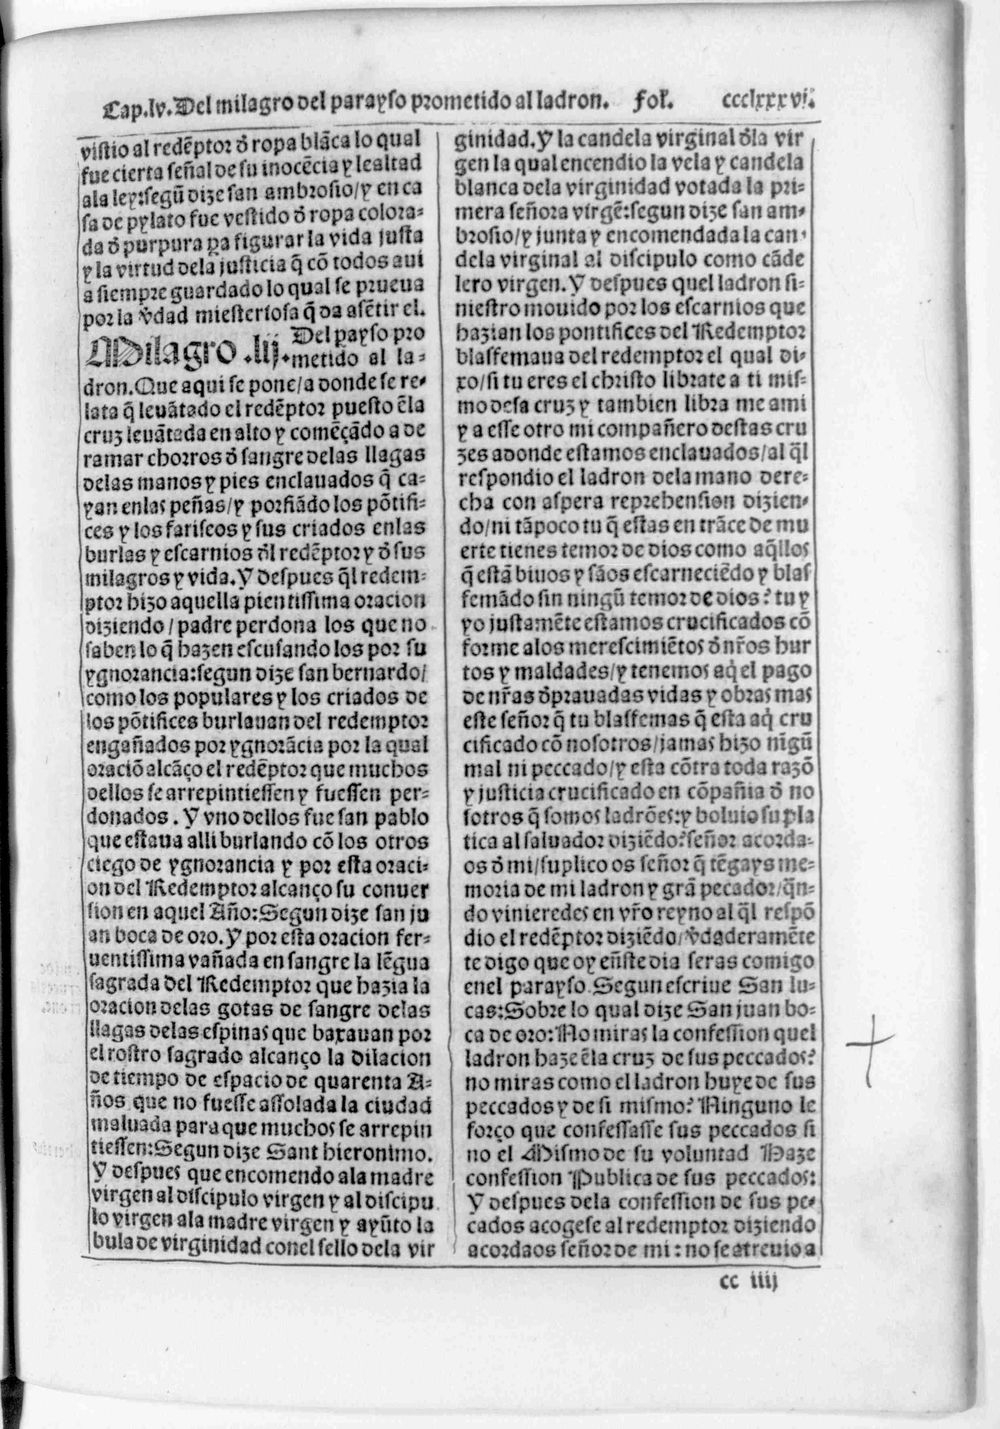 Cap.lv. Del milagro del parayso prometido al ladron. Fol. ccclxxxvij.
vistio al redẽptor đ ropa blãca lo qual
fue cierta señal de su inocẽcia y lealtad
ala ley: segũ dize san ambrosio/ y en ca
sa de pylato fue vestido đ ropa colora-
da đ purpura ꝑa figurar la vida justa
y la virtud dela justicia q̃ cõ todos aui
a siempre guardado lo qual se prueua
por la v̉dad miesteriosa q̃ da asẽtir el.
Milagro .lij. Del payso pro
metido al la-
dron. Que aqui se pone/ a donde se re-
lata q̃ leuãtado el redẽptor puesto ẽla
cruz leuãtada en alto y comẽçãdo a de
ramar chorros đ sangre delas llagas
delas manos y pies enclauados q̃ ca-
yan enlas peñas/ y porfiãdo los põtifi-
ces y los fariseos y sus criados enlas
burlas y escarnios đl redẽptor y đ sus
milagros y vida. Y despues q̃l redem-
ptor hizo aquella pientissima oracion
diziendo/ padre perdona los que no
saben lo q̃ hazen escusando los por su
ygnorancia: segun dize san bernardo/
como los populares y los criados de
los põtifices burlauan del redemptor
engañados por ygnorãcia por la qual
oraciõ alcãço el redẽptor que muchos
dellos se arrepintiessen y fuessen per-
donados. Y vno dellos fue san pablo
que estaua alli burlando cõ los otros
ciego de ygnorancia y por esta oraci-
on del Redemptor alcanço su conuer
sion en aquel Año: Segun dize san ju
an boca de oro. Y por esta oracion fer-
uentissima vañada en sangre la lẽgua
sagrada del Redemptor que hazia la
oracion delas gotas de sangre delas
llagas delas espinas que baxauan por
el rostro sagrado alcanço la dilacion
de tiempo de espacio de quarenta A-
ños que no fuesse assolada la ciudad
maluada para que muchos se arrepin
tiessen: Segun dize Sant hieronimo.
Y despues que encomendo ala madre
virgen al discipulo virgen y al discipu
lo virgen ala madre virgen y ayũto la
bula de virginidad con el sello dela vir
ginidad. Y la candela virginal đla vir
gen la qual encendio la vela y candela
blanca dela virginidad votada la pri-
mera señora virgẽ: segun dize san am-
brosio/ y junta y encomendada la can-
dela virginal al discipulo como cãde
lero virgen. Y despues quel ladron si-
niestro mouido por los escarnios que
hazian los pontifices del Redemptor
blasfemaua del redemptor el qual di-
xo/ si tu eres el christo librate a ti mis-
mo desa cruz y tambien libra me ami
y a esse otro mi compañero destas cru
zes adonde estamos enclauados/ al q̃l
respondio el ladron dela mano dere-
cha con aspera reprehension dizien-
do/ ni tãpoco tu q̃ estas en trãce de mu
erte tienes temor de dios como aq̃llos
q̃ estã biuos y sãos escarneciẽdo y blas
femãdo sin ningũ temor de dios? tu y
yo justamẽte estamos crucificados cõ
forme alos merescimiẽtos đ nr̃os hur
tos y maldades/ y tenemos aq̃ el pago
de nr̃as đprauadas vidas y obras mas
este señor q̃ tu blasfemas q̃ esta aq̃ cru
cificado cõ nosotros/ jamas hizo nĩgũ
mal ni peccado/ y esta cõtra toda razõ
y justicia crucificado en cõpañia đ no
sotros q̃ somos ladrões: y boluio su pla
tica al saluador diziẽdo: señor acorda-
os đ mi/ suplico os señor q̃ tẽgays me-
moria de mi ladron y grã pecador/ q̃n-
do vinieredes en vr̃o reyno al q̃l respõ
dio el redẽptor diziẽdo/ v̉daderamẽte
te digo que oy en̄ste dia seras comigo
enel parayso. Segun escriue San lu-
cas: Sobre lo qual dize San juan bo-
ca de oro: No miras la confession quel
ladron haze ẽla cruz de sus peccados?
no miras como el ladron huye de sus
peccados y de si mismo? Ninguno le
forço que confessasse sus peccados si
no el Mismo de su voluntad Haze
confession Publica de sus peccados:
Y despues dela confession de sus pe-
cados acogese al redemptor diziendo
acordaos señor de mi: no se atreuio a
cc iiij